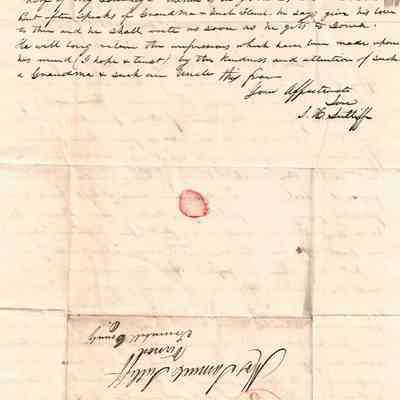 But often speaks of Grandma & Uncle he says give his love
to them and he shall write as soon as he gets to Iowa.
He will long retain the impressions which have been made upon
his mind (I hope & trust) by the kindness and attention of such
a Grandma & such an Uncle this from
Your Affectionate
Son
S. H. Sutliff
Mrs Samuel Sutliff
Vernon
Trumbull County
O.